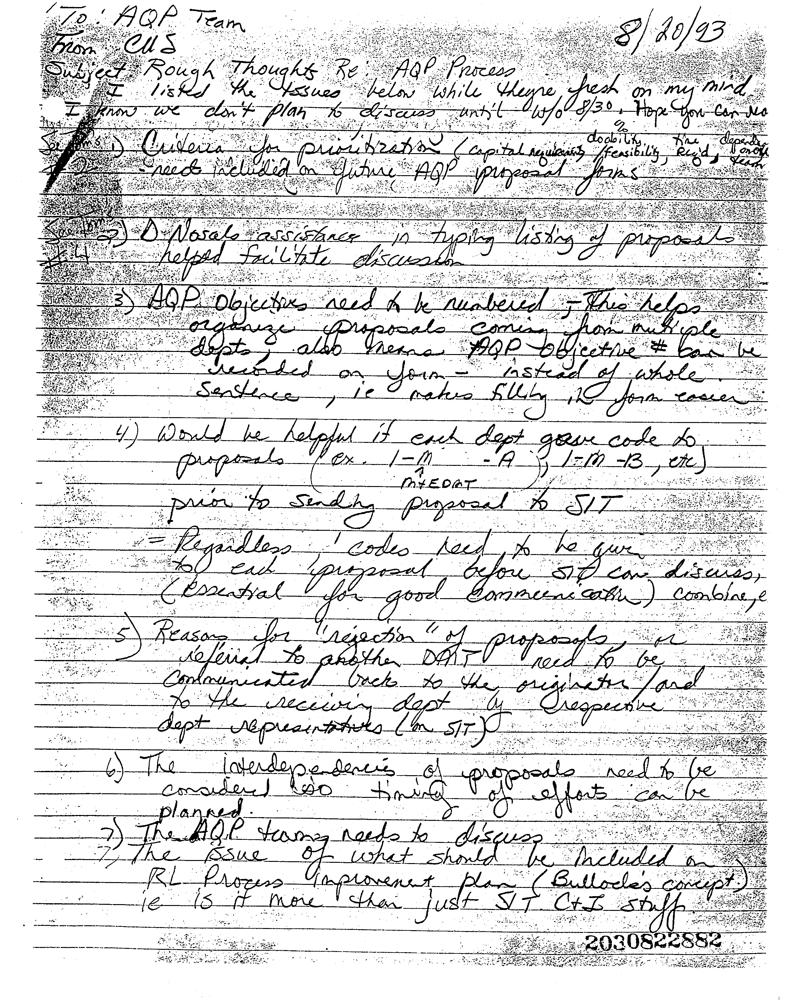 To: AQP Team
8/20/93
From CUS
Subject: Rough Thoughts Re: AQP Process
I listed the issues below while they're fresh on my mind.
I know we don't plan to discuss until w/o 8/30. Hope you can
1) Criteria for prioritization (capital requirements, doability, feasibility, time req'd,
- needs included on future AQP proposal forms
2) D. Nosals assistance in typing listing of proposals
helped facilitate discussion
3) AQP Objectives need to be numbered - This helps
organize proposals coming from multiple
depts, also means AQP Objective # can be
recorded on form - instead of whole
sentence, ie makes filling in form easier
4) Would be helpful if each dept gave code to
proposals (ex. 1-M -A), 1-M -B, etc)
prior to sending proposal to SIT
= Regardless, codes need to be given
to each proposal before SIT can discuss,
(essential for good communication) combine, e
5) Reasons for "rejection" of proposals, or
referral to another DAIT need to be
communicated back to the originator/and
to the receiving dept by respective
dept representatives (on SIT)
6) The interdependencies of proposals need to be
considered so timing of efforts can be
planned.
7) The AQP teams needs to discuss
The issue of what should be included on
RL Process improvement plan (Bullock's concept)
ie is it more than just SIT C+I stuff
2030822882